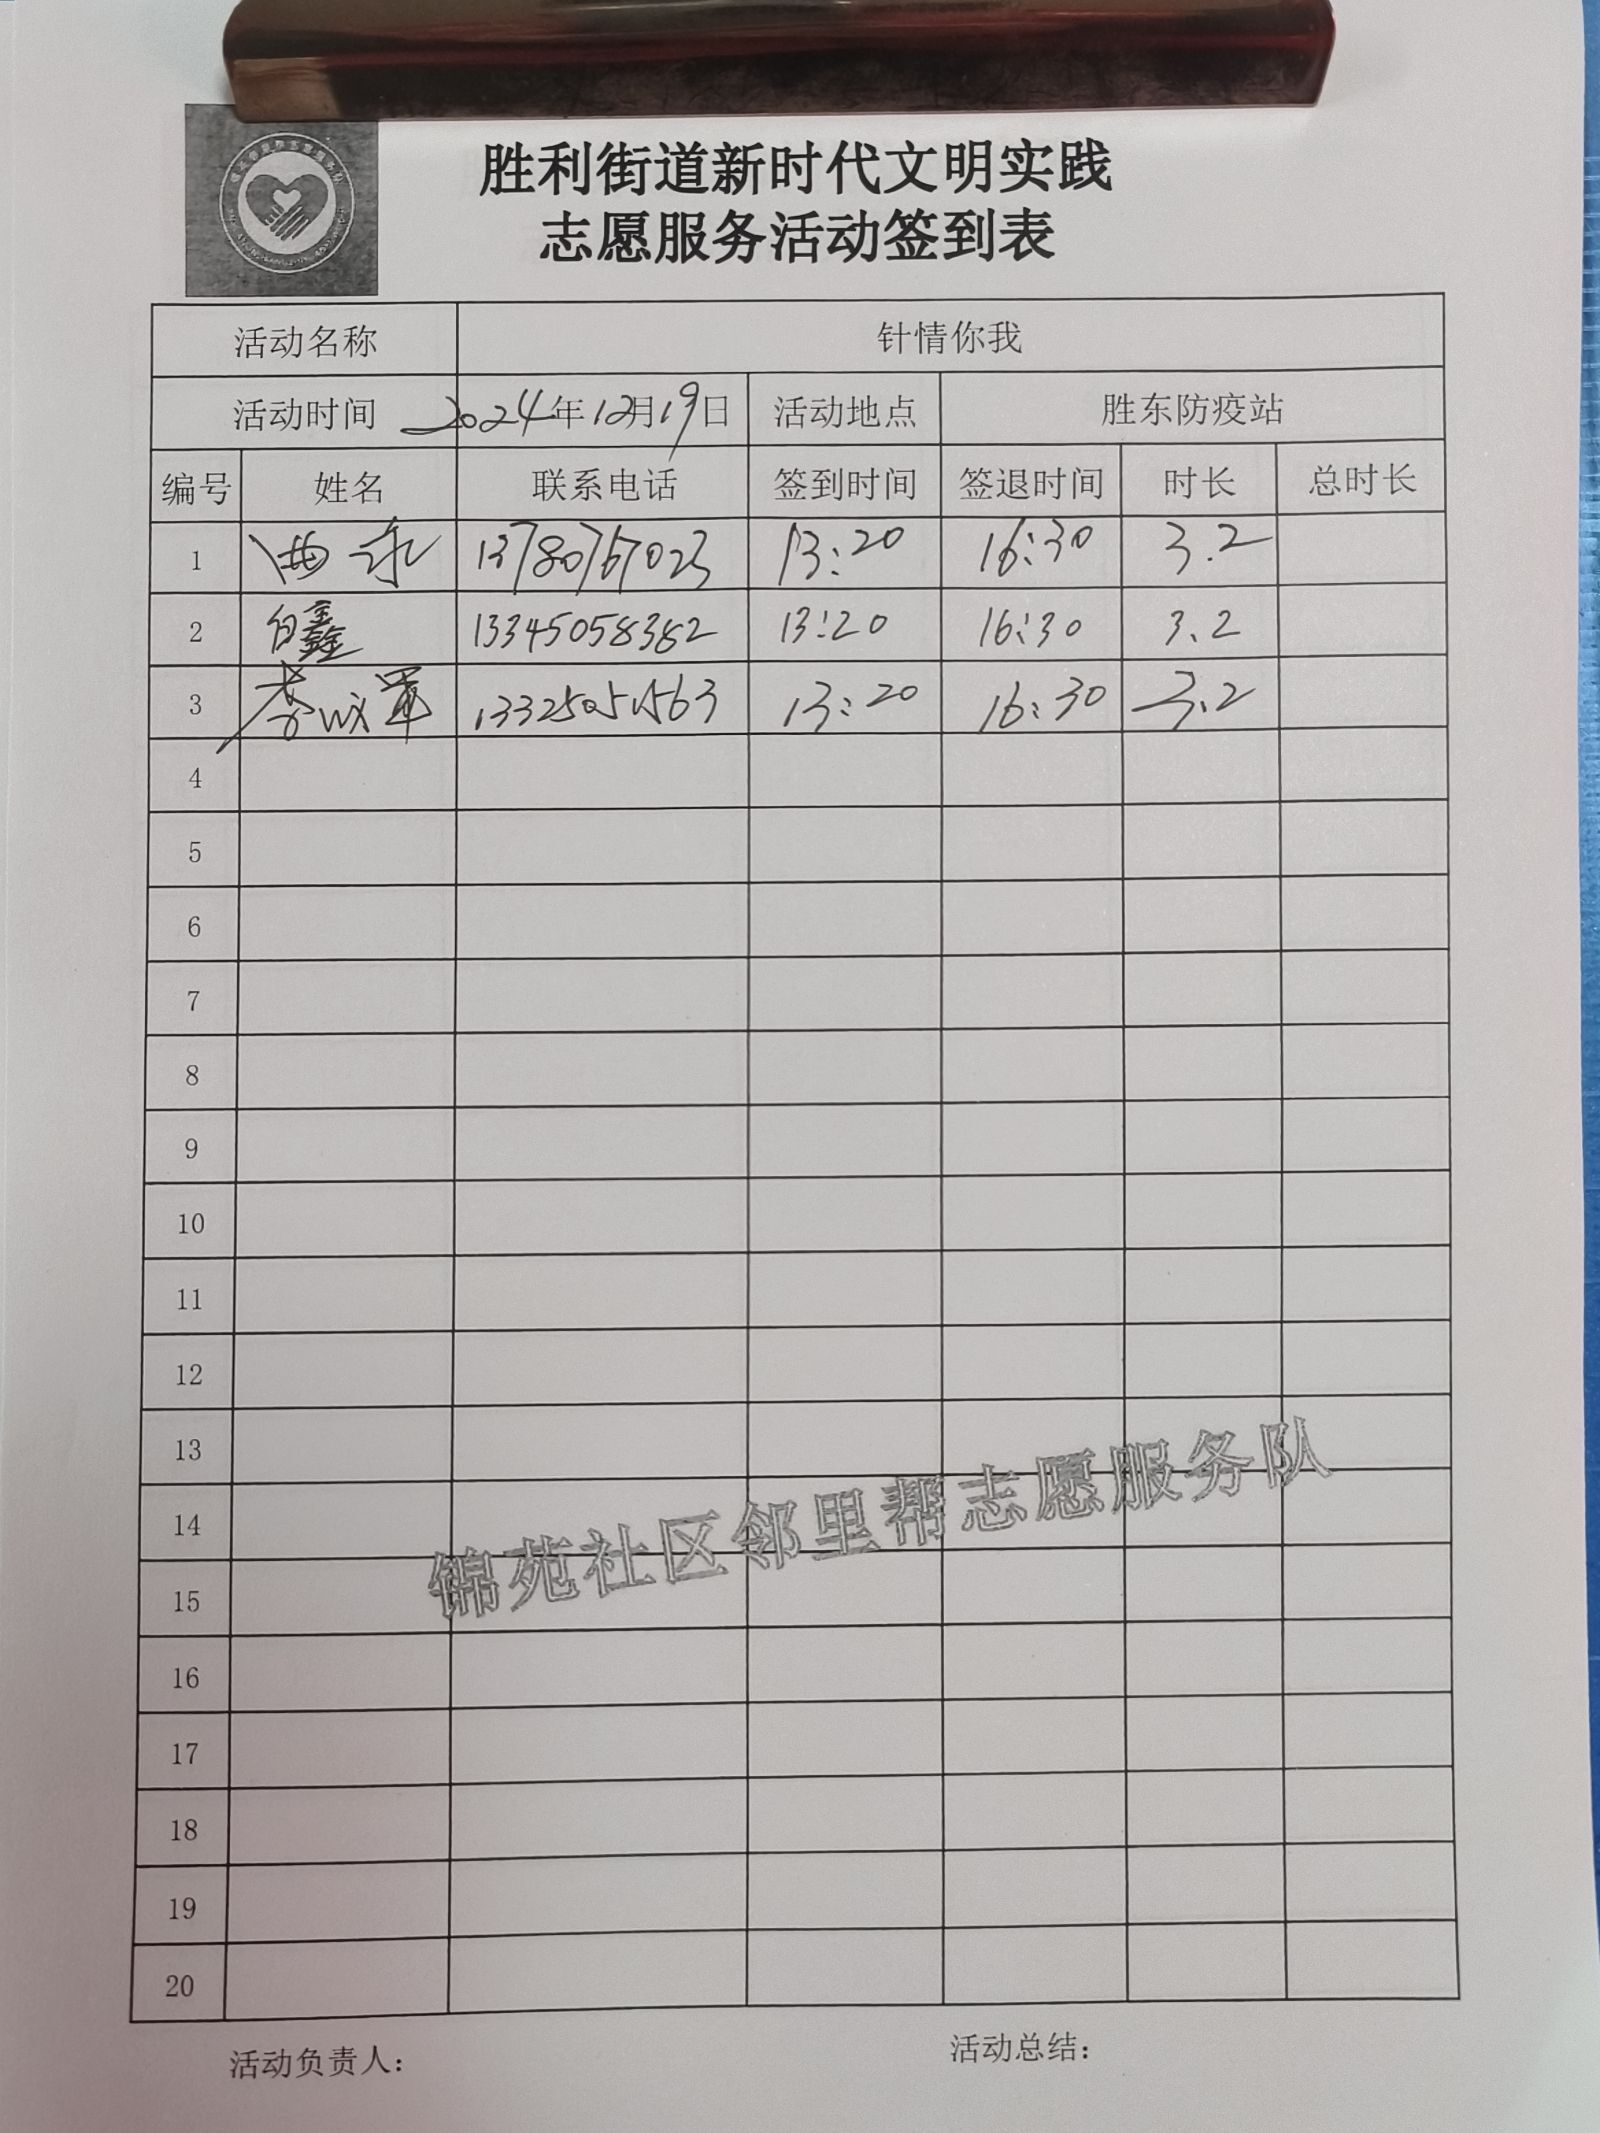 胜利街道新时代文明实践
志愿服务活动签到表
活动名称 针情你我
活动时间 2024年12月19日 活动地点 胜东防疫站
编号 姓名 联系电话 签到时间 签退时间 时长 总时长
1 13780767023 13:20 16:30 3.2
2 白鑫 13345058382 13:20 16:30 3.2
3 李成军 13325051563 13:20 16:30 3.2
4
5
6
7
8
9
10
11
12
13
14
15
16
17
18
19
20
锦苑社区邻里帮志愿服务队
活动负责人: 活动总结: